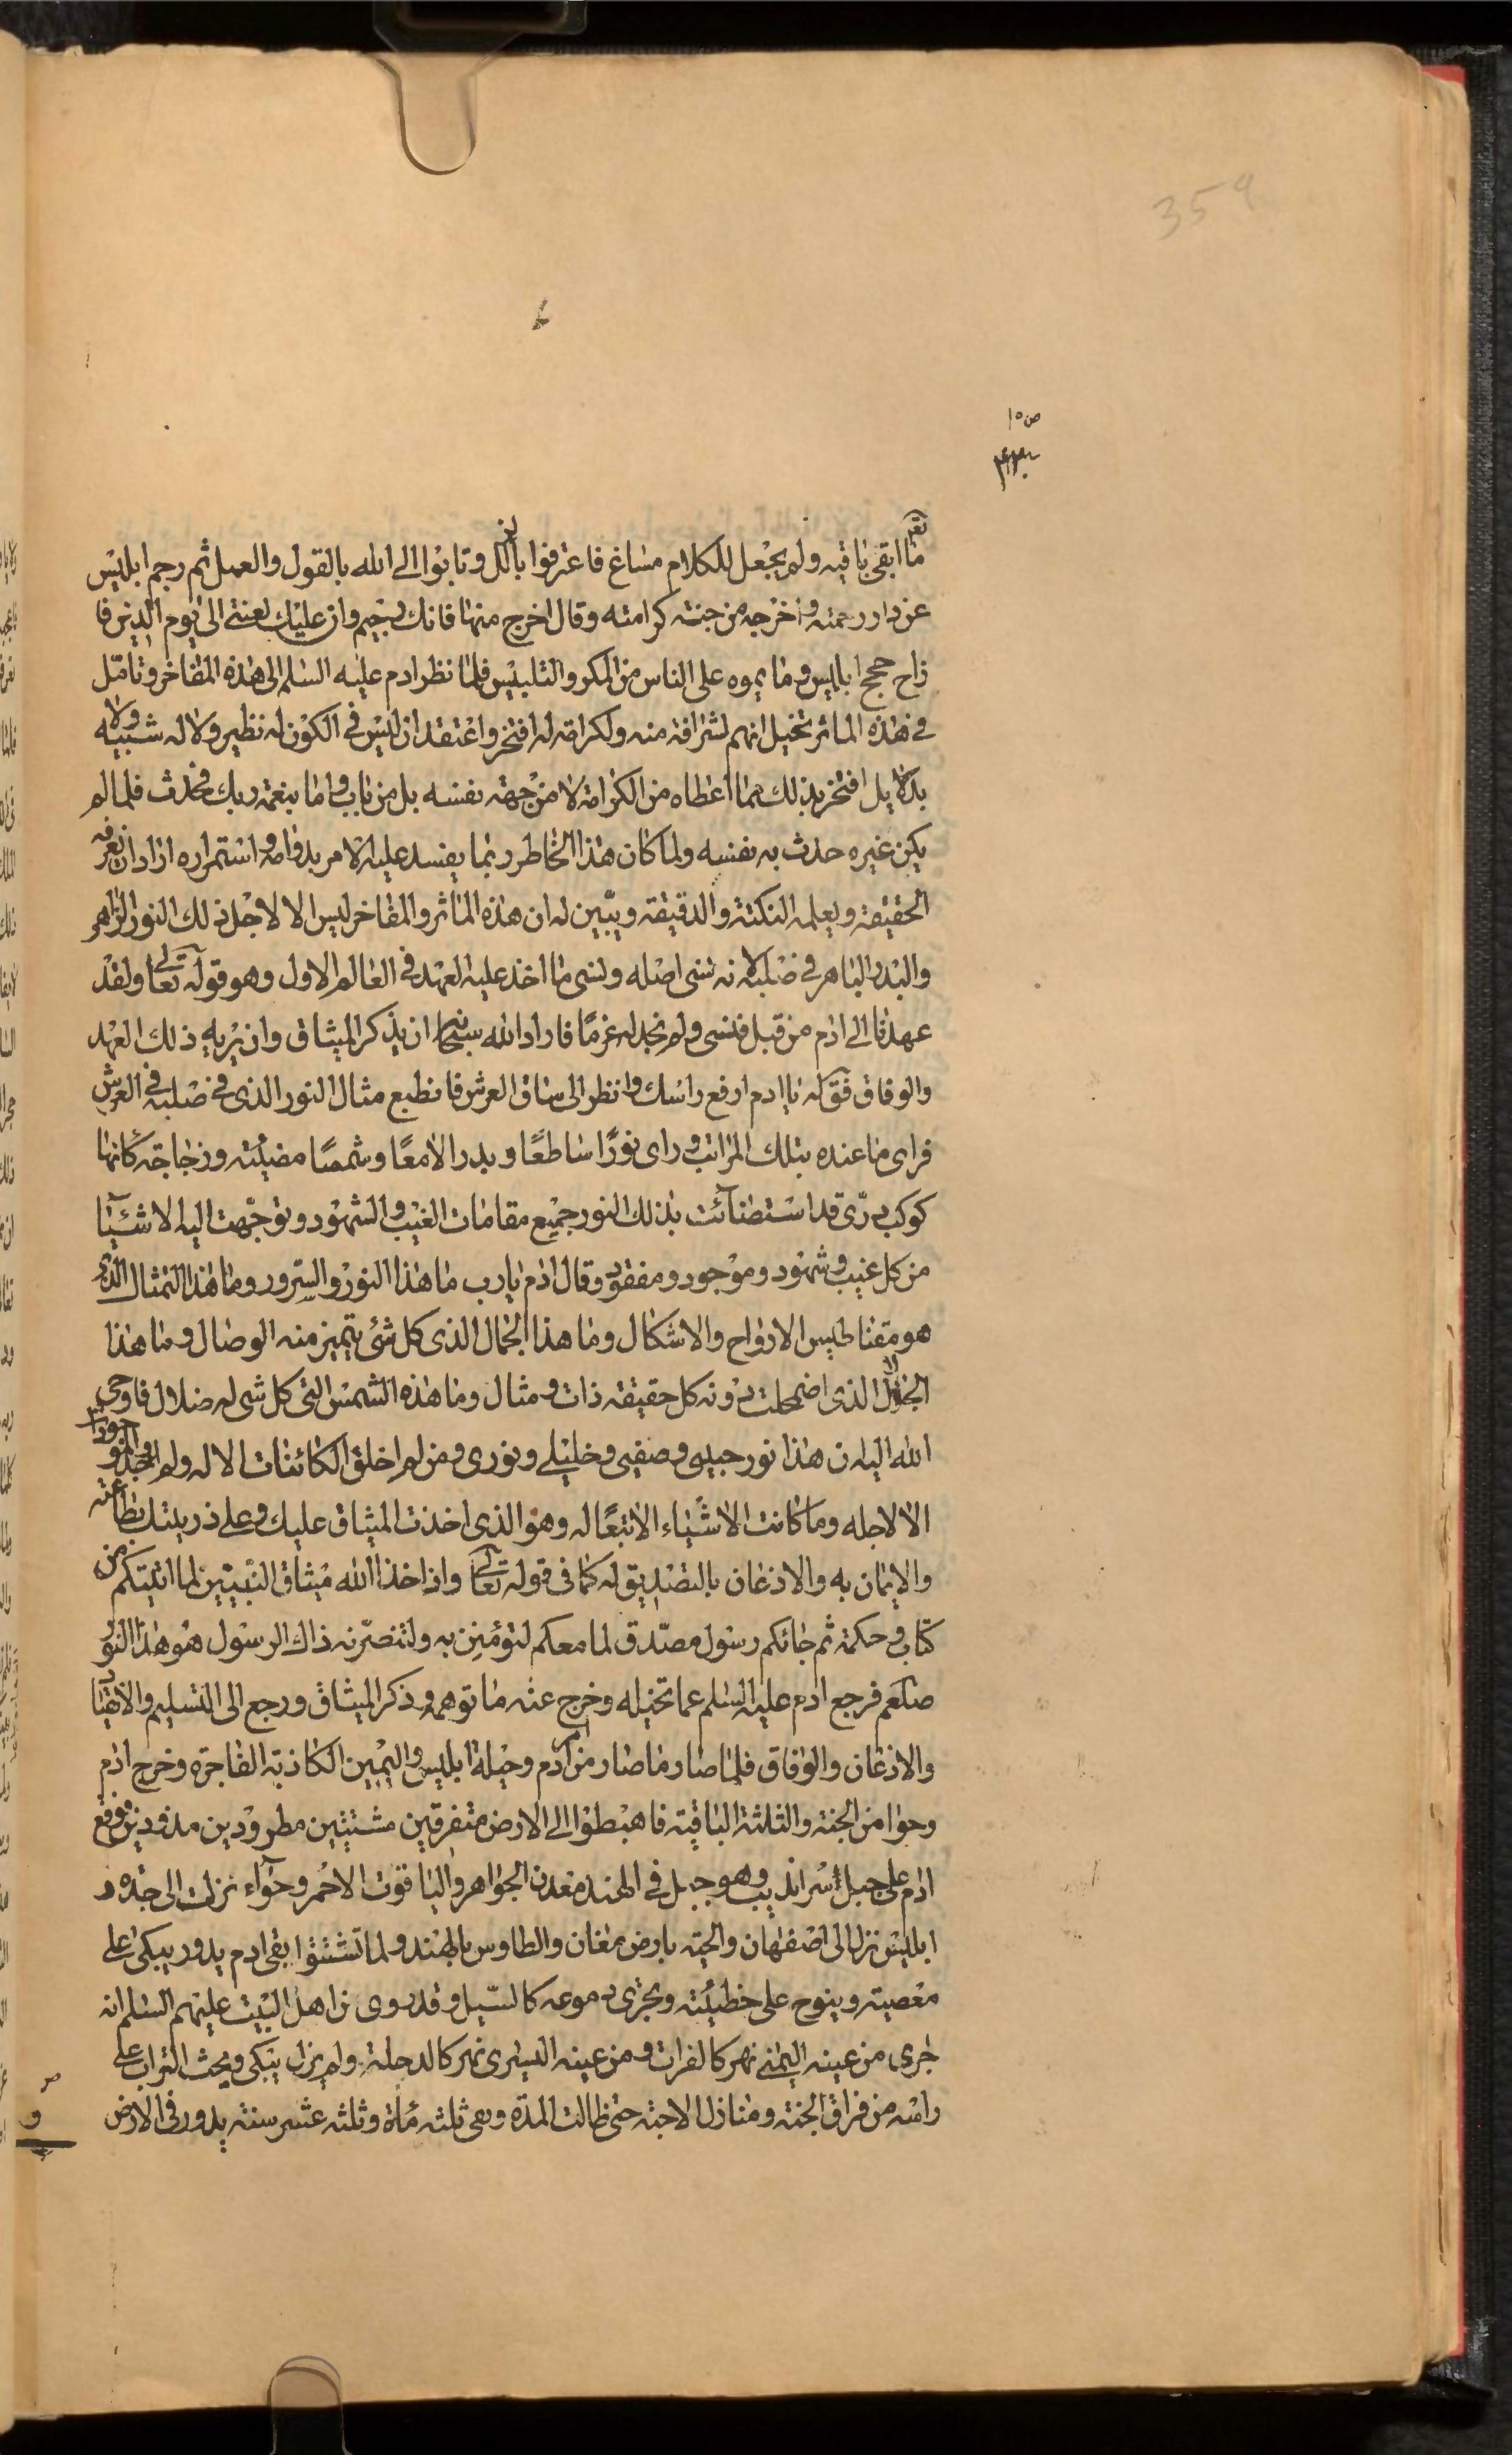 359
ص ١٥
نعم
ما ابقى باقيه ولم يجعل للكلام مساغ فاعترفوا بالكل وتابوا الى الله بالقول والعمل ثم رجم ابليس
عن دار رحمته واخرجه من جنته كرامته وقال اخرج منها فانك رجيم وان عليك لعنتى الى يوم الدين فا
زاح حجج ابليس وما يموه على الناس من المكر والتلبيس فلما نظر ادم عليه السلم الى هذه المفاخر وتامّل
فى هذه الماثر تخيل انهم لشرافة منه ولكرامة له افتخر واعتقد ان ليس فى الكون له نظير ولا له شبيه ولا
بدلا بل افتخر بذلك مما اعطاه من الكرامة لا من جهة نفسه بل من باب واما بنعمة ربك فحدث فلما لم
يكن غيره حدث به نفسه ولما كان هذا الخاطر ربما يفسد عليه الامر بدوامه واستمراره اراد ان يعرفه
الحقيقة ويعلمه النكتة والدقيقه ويبّين له ان هذه الماثر والمفاخر ليس الا لاجل ذلك النور الزاهر
والبدر الباهر فى صلبه لانه نسى اصله ونسى ما اخذ عليه العهد فى العالم الاول وهو قوله تعالى ولقد
عهدنا الى ادم من قبل فنسى ولم نجد له عزمًا فاراد الله سبحانه ان يذكر الميثاق وان يريه ذلك العهد
والوفاق فق له يا ادم ارفع راسك وانظر الى ساق العرش فانطبع مثال النور الذى فى صلبه فى العرش
فراى ما عنده بتلك المراتب وراى نورًا ساطعًا وبدر الامعًا وشمسًا مضيئة وزجاجة كانها
كوكب درّى قد استضائت بذلك النور جميع مقامات الغيب والشهود وتوجّهت اليه الاشياء
من كل غيب وشهود وموجود ومفقود وقال ادم يارب ما هذا النور والسرور وما هذا التمثال الذى
هو مقناطيس الارواح والاشكال وما هذا الجمال الذى كل شئ يتميز منه الوصال وما هذا
الجلال الذى اضمحلت دونه كل حقيقة ذات ومثال وما هذه الشمس التى كل شى له ضلال فاوحى
الله اليه ان هذا نور حبيبى وصفيى وخليلى ونورى ومن لم اخلق الكائنات الا له ولم اوجد الموجودات
الا لاجله وما كانت الاشياء الا تبعًا له وهو الذى اخذت الميثاق عليك وعلى ذريتك بطاعته
والايمان به والاذعان بالتصديق له كما فى قوله تعالى واذ اخذ الله ميثاق النبيّين لما اتيتكم من
كتاب وحكمة ثم جائكم رسول مصدّق لما معكم لتؤمنن به ولتنصرّنه ذاك الرسول هو هذا النور
صلعم فرجع ادم عليه السلم عما تخيله وخرج عنه ما توهمه وذكر الميثاق ورجع الى التسليم والانقياد
والاذعان والوفاق فلما صار ما صار من امر ادم وحيلة ابليس واليمين الكاذبة الفاجرة وخرج ادم
وحوا من الجنة والثلثة الباقية فاهبطوا الى الارض متفرقين مشتتين مطرودين مذؤدين فوقع
ادم على جبل سرانديب وهو جبل فى الهند معدن الجواهر والياقوت الاحمر وحوآء نزلت الى جده و
ابليس نزل الى اصفهان والحيّه بارض مغان والطاوس بالهند ولما تشتتوا بقى ادم يدور يبكى على
معصيته وينوح على خطيئته وبجرى دموعه كالسّيل وقد روى عن اهل البيت عليهم السلم انه
جرى من عينه اليمنى نهر كالفرات ومن عينه اليسرى نهر كالدجلة ولم يزل يبكى ويحث التراب على
راسه من فراق الجنة ومنازل الاحبّة حتى طالت المدّة وبقى ثلثه مأة وثلثه عشر سنة يدور فى الارض